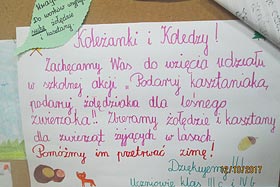 Do worków wsypu
żołędzie
i kasztany
Koleżanki i Koledzy!
Zachęcamy Was do wzięcia udziału
w szkolnej akcji „Podaruj kasztaniaka,
podaruj żołędziaka dla leśnego
zwierzaka”! Zbieramy żołędzie i kasztany
dla zwierząt żyjących w lasach.
Pomóżmy im przetrwać zimę!
12/10/2017
Dziękujemy!
Uczniowie klas III c i IV b